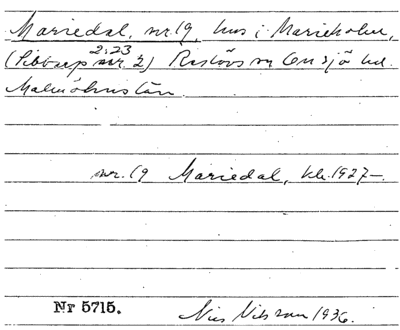 Mariedal, nr.19, hus i Marieholm,
2:23
(Sibbarp nr 2) Reslövs sn Onsjö hd.
Malmöhus län.
nr. 19 Mariedal, kl. 1927–.
Nr 5715.
Nils Nilsson 1936.